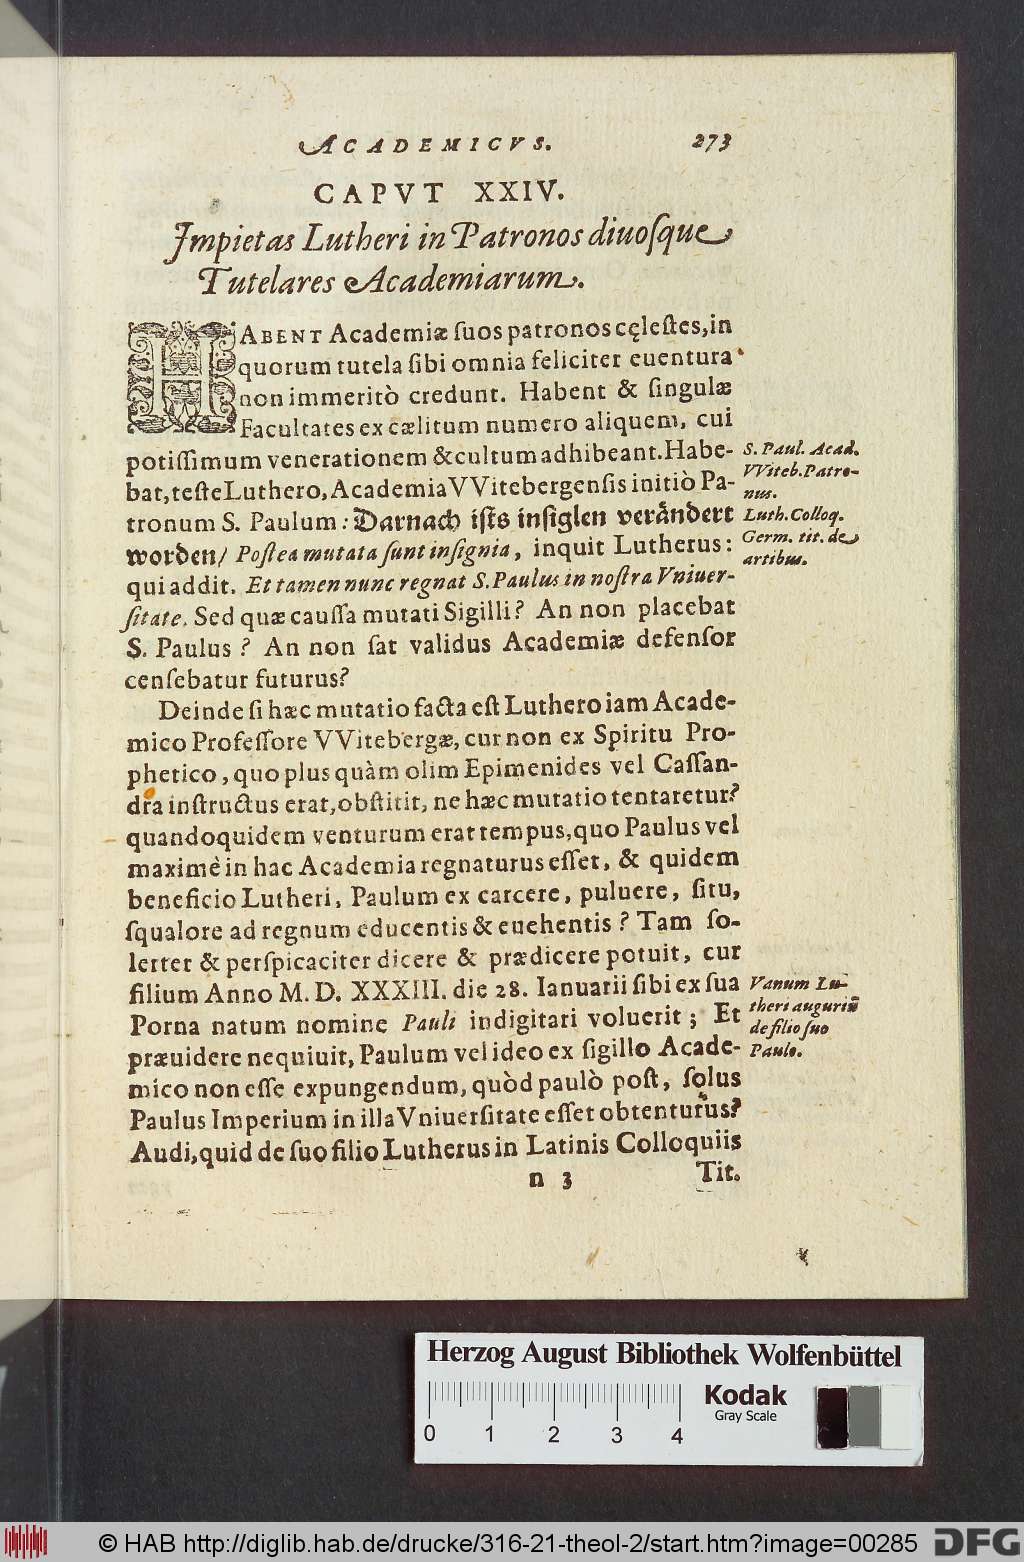 ACADEMICVS. 273
CAPVT XXIV.
Impietas Lutheri in Patronos diuosque
Tutelares Academiarum.
HABENT Academiæ suos patronos cęlestes, in
quorum tutela sibi omnia feliciter euentura
non immeritò credunt. Habent & singulæ
Facultates ex cælitum numero aliquem, cui
potissimum venerationem & cultum adhibeant. Habe-
bat, teste Luthero, Academia VVitebergensis initiò Pa-
tronum S. Paulum: Darnach ists insiglen verändert
worden/ Postea mutata sunt insignia, inquit Lutherus:
qui addit. Et tamen nunc regnat S. Paulus in nostra Vniuer-
sitate. Sed quæ caussa mutati Sigilli? An non placebat
S. Paulus? An non sat validus Academiæ defensor
censebatur futurus?
S. Paul. Acad.
VViteb. Patro-
nus.
Luth. Colloq.
Germ. tit. de
artibus.
Deinde si hæc mutatio facta est Luthero iam Acade-
mico Professore VVitebergæ, cur non ex Spiritu Pro-
phetico, quo plus quàm olim Epimenides vel Cassan-
dra instructus erat, obstitit, ne hæc mutatio tentaretur?
quandoquidem venturum erat tempus, quo Paulus vel
maximè in hac Academia regnaturus esset, & quidem
beneficio Lutheri, Paulum ex carcere, puluere, situ,
squalore ad regnum educentis & euehentis? Tam so-
lerter & perspicaciter dicere & prædicere potuit, cur
filium Anno M. D. XXXIII. die 28. Ianuarii sibi ex sua
Porna natum nomine Pauli indigitari voluerit; Et
præuidere nequiuit, Paulum vel ideo ex sigillo Acade-
mico non esse expungendum, quòd paulò post, solus
Paulus Imperium in illa Vniuersitate esset obtenturus?
Audi, quid de suo filio Lutherus in Latinis Colloquiis
Vanum Lu-
theri auguriũ
de filio suo
Paulo.
n 3 Tit.
Herzog August Bibliothek Wolfenbüttel
Kodak
Gray Scale
0 1 2 3 4
© HAB http://diglib.hab.de/drucke/316-21-theol-2/start.htm?image=00285
DFG